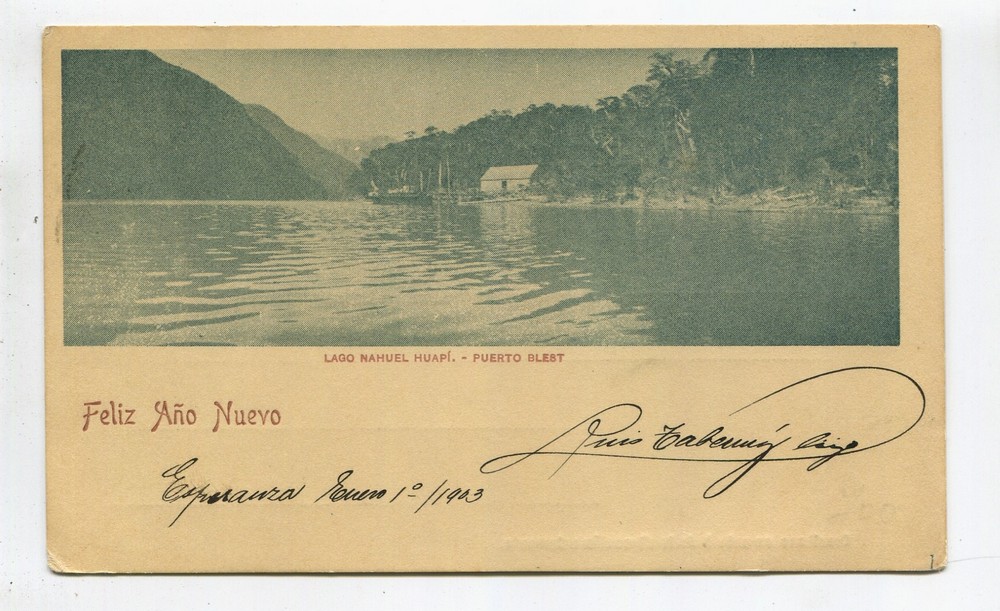 LAGO NAHUEL HUAPÍ. - PUERTO BLEST
Feliz Año Nuevo
Luis Tabernig hijo
Esperanza Enero 1º/1903